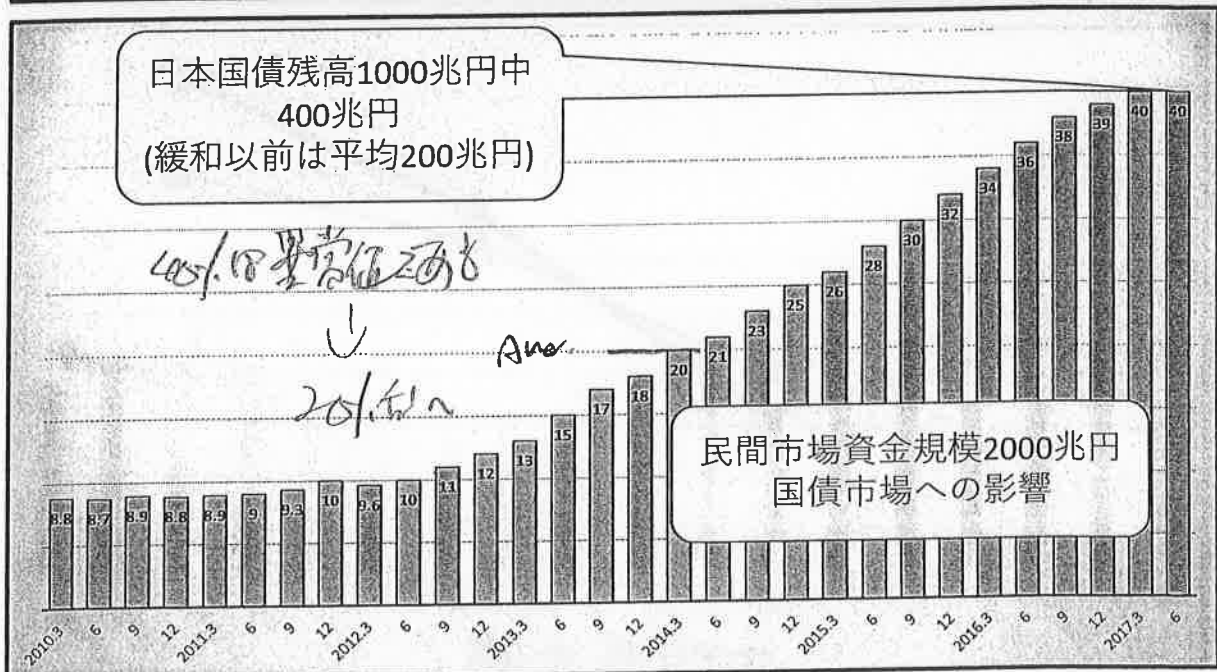 日本国債残高1000兆円中
400兆円
(緩和以前は平均200兆円)
40%は異常値である
↓
20%台へ
Ave.
民間市場資金規模2000兆円
国債市場への影響
8.8 8.7 8.9 8.8 8.9 9 9.3 10 9.6 10 11 12 13 15 17 18 20 21 23 25 26 28 30 32 34 36 38 39 40 40
2010.3 6 9 12 2011.3 6 9 12 2012.3 6 9 12 2013.3 6 9 12 2014.3 6 9 12 2015.3 6 9 12 2016.3 6 9 12 2017.3 6